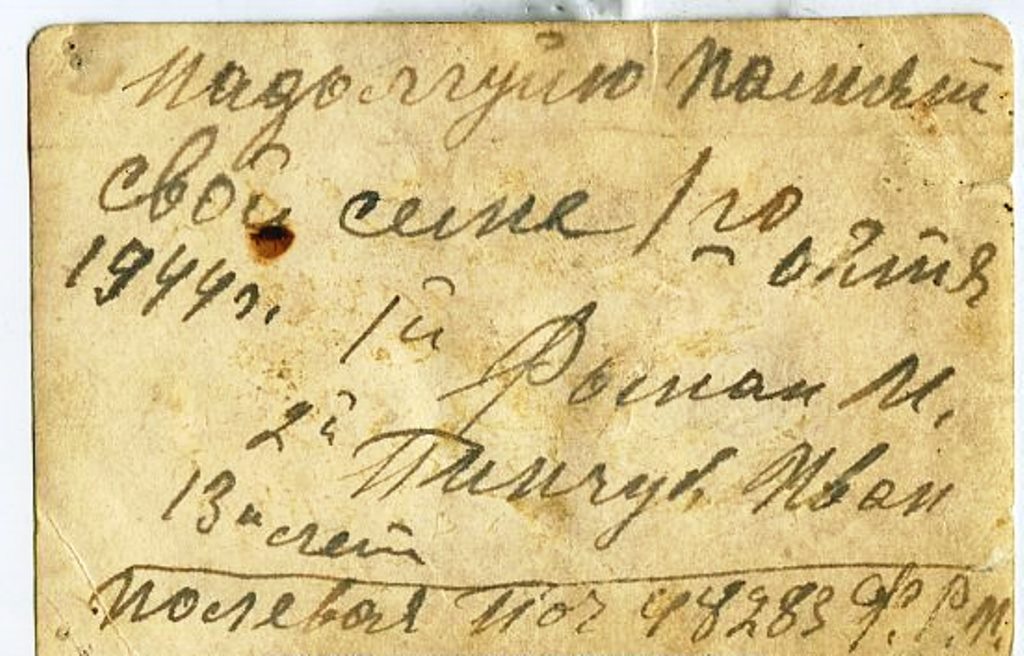 надолгуйю памят
свой семе 1го октя
1944г. 1й Роман М.
2й Пинчук Иван
13и лет
полевая Поч 48283 Ф.Р.М.